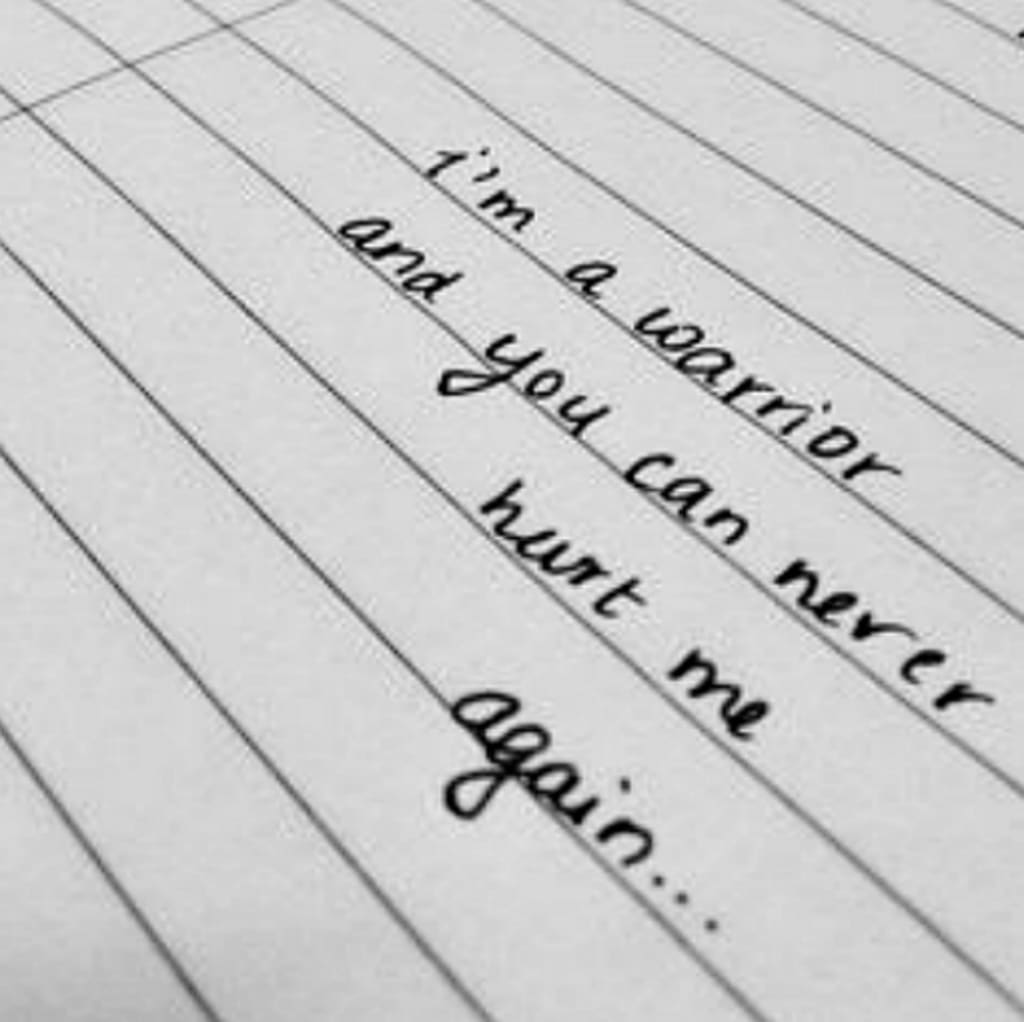 i'm a warrior
and you can never
hurt me
again...